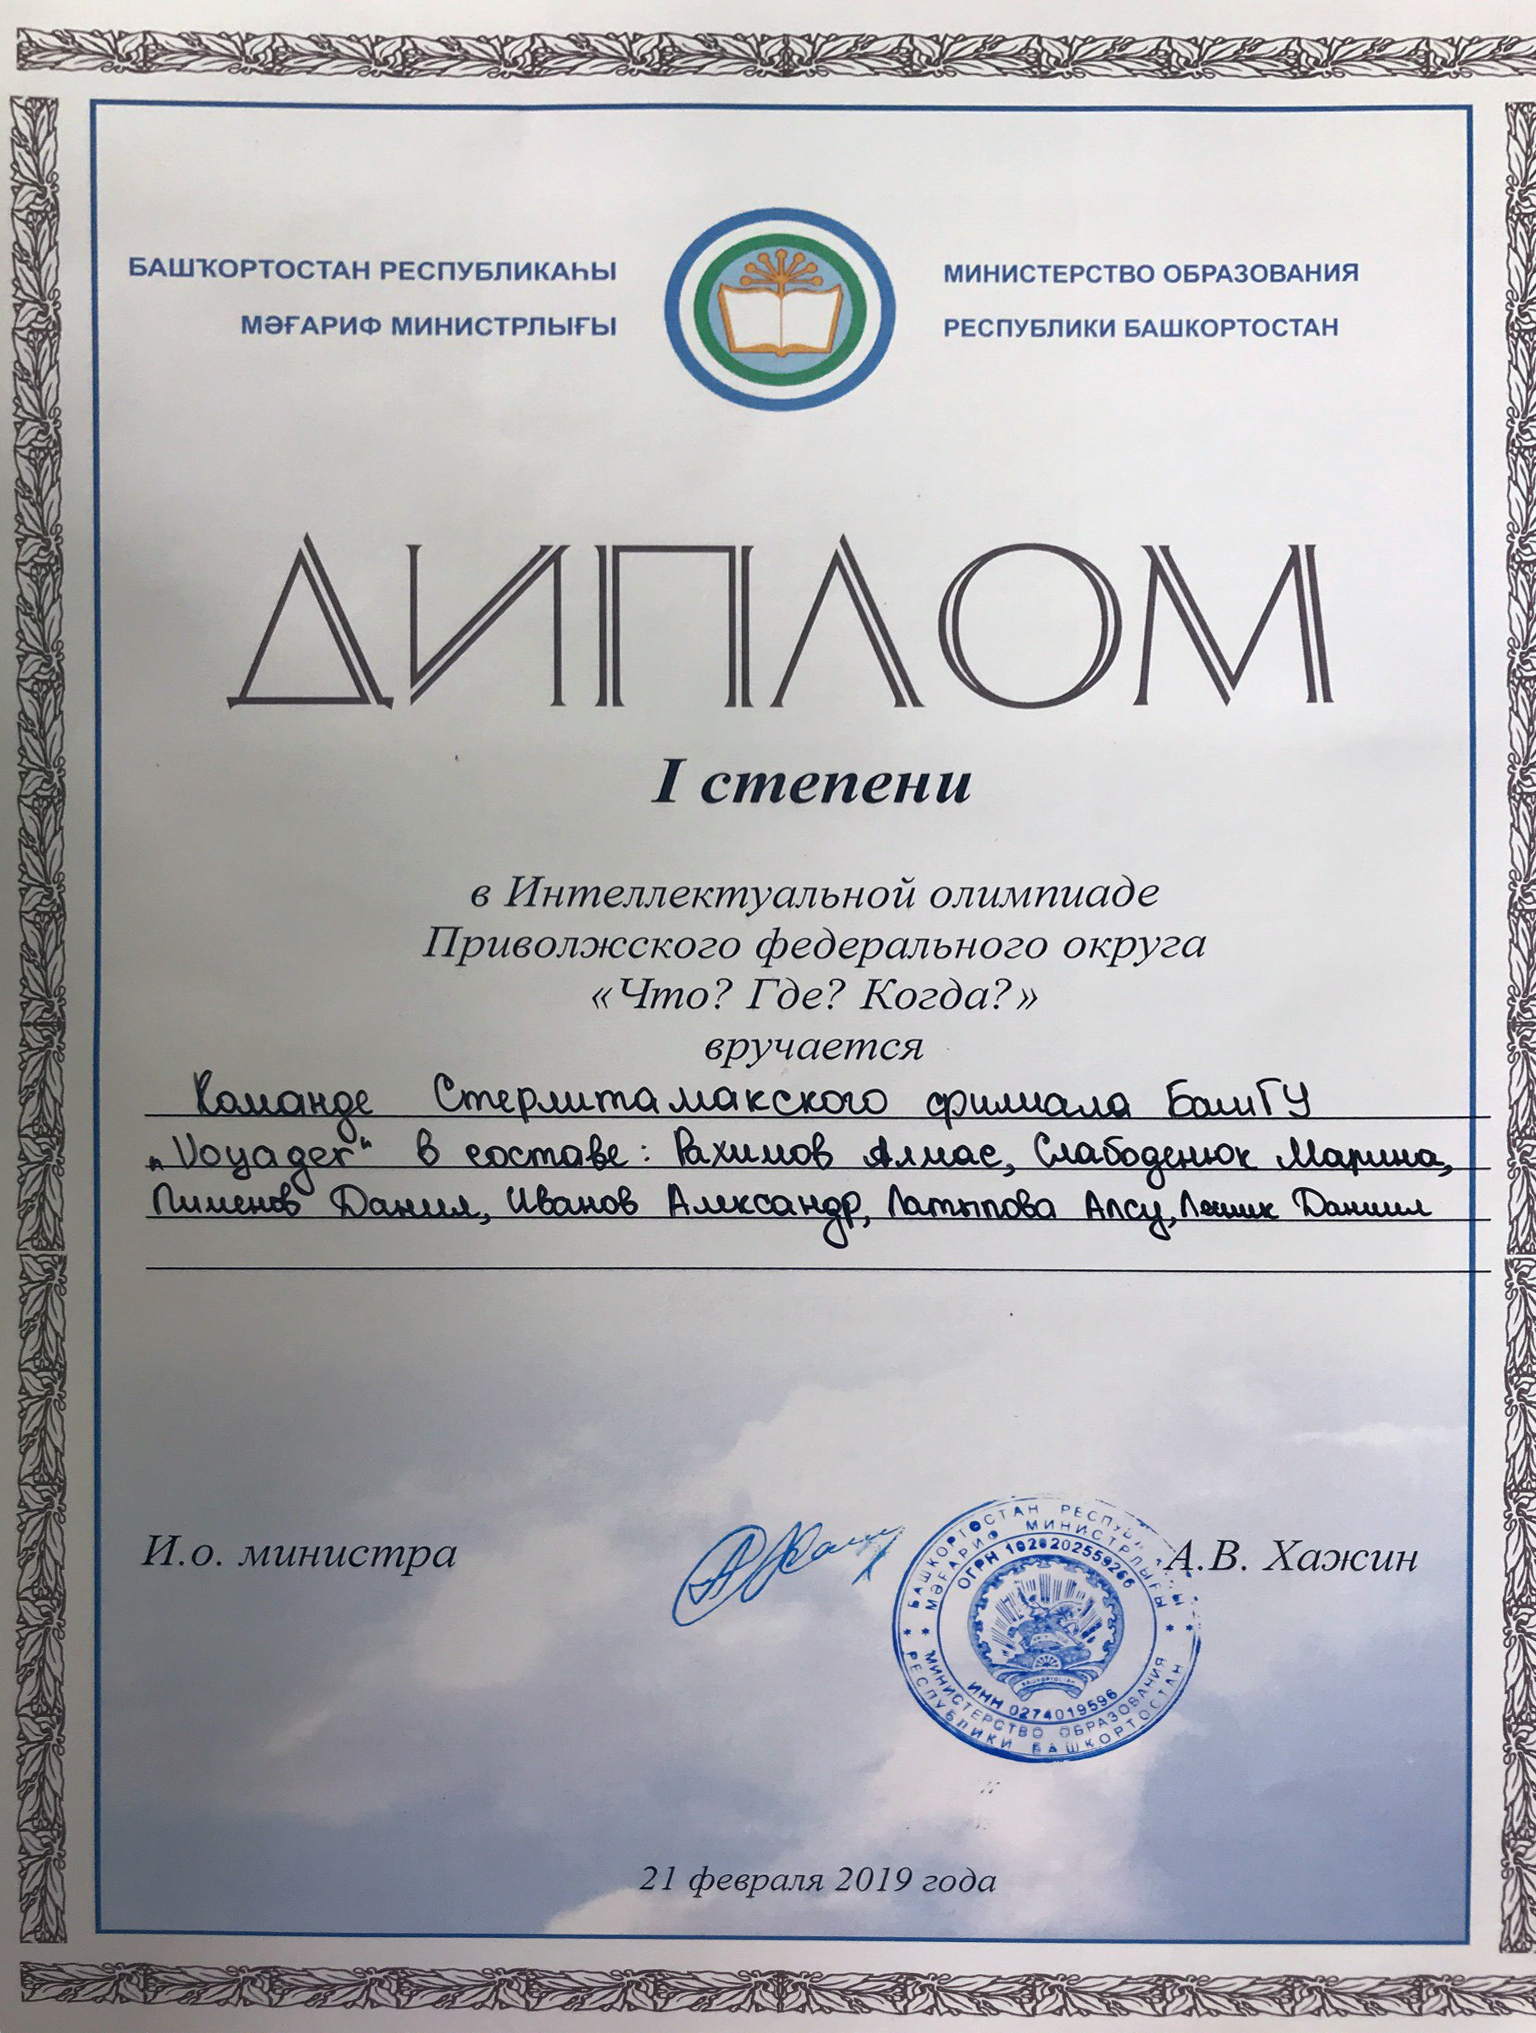 БАШҠОРТОСТАН РЕСПУБЛИКАҺЫ
МӘҒАРИФ МИНИСТРЛЫҒЫ
МИНИСТЕРСТВО ОБРАЗОВАНИЯ
РЕСПУБЛИКИ БАШКОРТОСТАН
ДИПЛОМ
I степени
в Интеллектуальной олимпиаде
Приволжского федерального округа
«Что? Где? Когда?»
вручается
Команде Стерлитамакского филиала БашГУ
„Voyager“ в составе: Рахимов Алмас, Слабоденюк Марина,
Пименов Данил, Иванов Александр, Латыпова Алсу, Даниил
И.о. министра
А.В. Хажин
БАШҠОРТОСТАН РЕСПУБ
МӘҒАРИФ МИНИСТРЛЫҒЫ
ОГРН 1020202559266
ИНН 0274019596
МИНИСТЕРСТВО ОБРАЗОВАНИЯ
РЕСПУБЛИКИ БАШКОРТОСТАН
21 февраля 2019 года